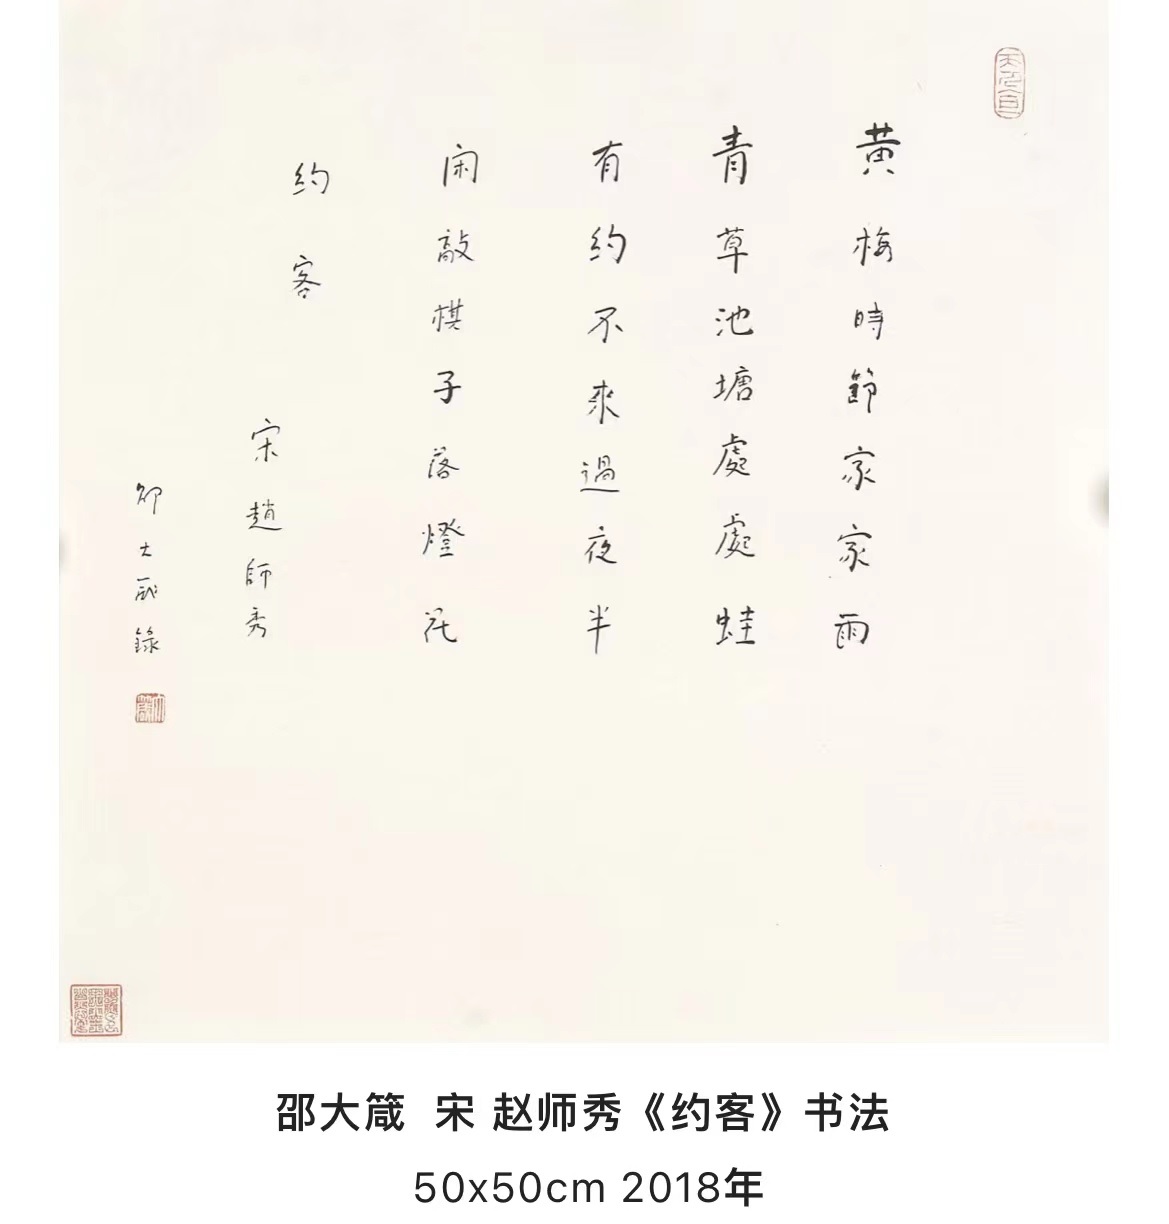 黄梅時節家家雨
青草池塘處處蛙
有約不來過夜半
闲敲棋子落燈花
約客
宋趙師秀
邵大箴錄
邵大箴 宋 赵师秀《约客》书法
50x50cm 2018年